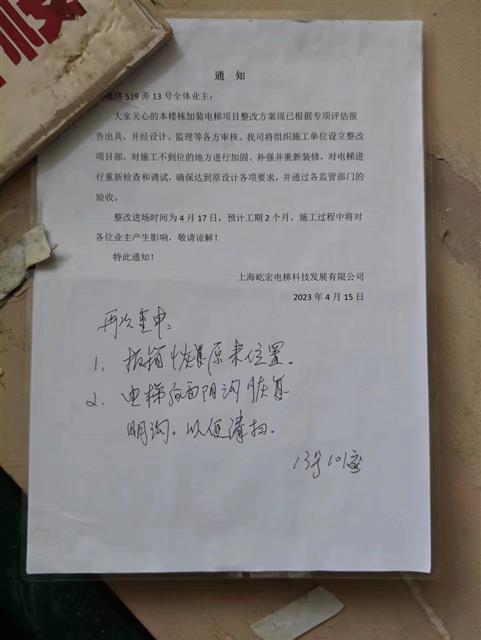 通 知
德路 519 弄 13 号全体业主：
大家关心的本楼栋加装电梯项目整改方案现已根据专项评估报
告出具，并经设计、监理等各方审核。我司将组织施工单位设立整改
项目部，对施工不到位的地方进行加固、补强并重新装修，对电梯进
行重新检查和调试，确保达到原设计各项要求，并通过各监管部门的
验收。
整改进场时间为 4 月 17 日，预计工期 2 个月，施工过程中将对
各位业主产生影响，敬请谅解！
特此通知！
上海屹宏电梯科技发展有限公司
2023 年 4 月 15 日
再次重申：
1、报箱恢复原来位置。
2、电梯后面阴沟恢复
明沟。以便清扫.
13号101室